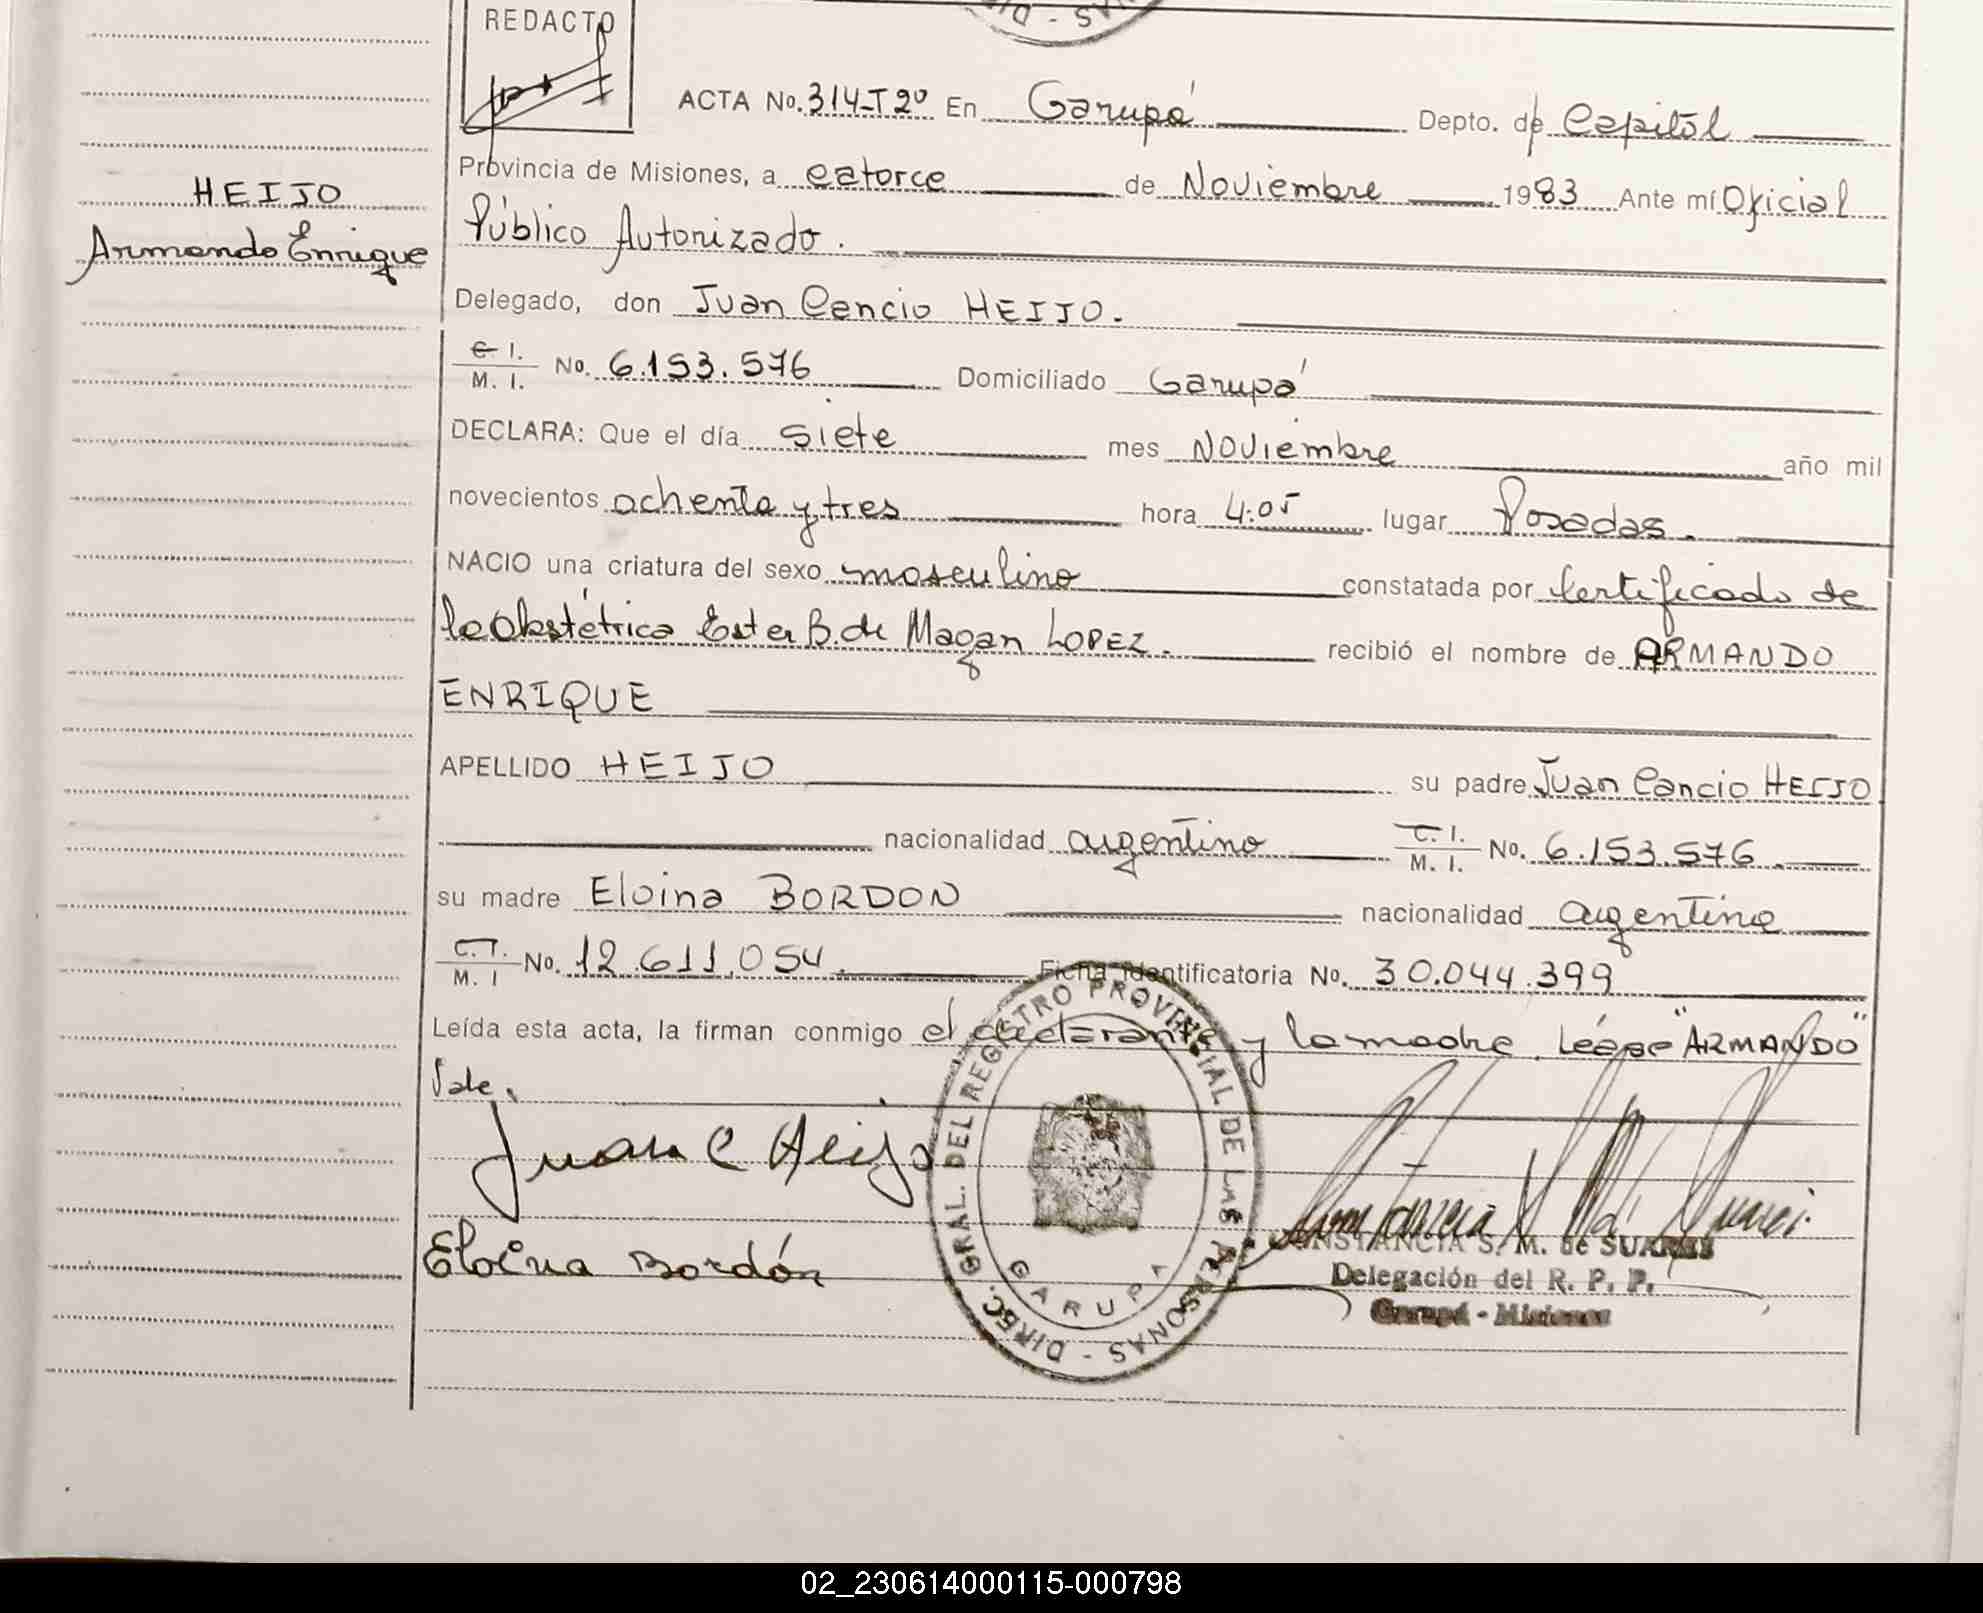 AS - DI
REDACTO
ACTA No. 314-T2º En Garupá Depto. de Capital
Provincia de Misiones, a catorce de Noviembre 1983 Ante mí Oficial
HEIJO
Público Autorizado.
Armando Enrique
Delegado, don Juan Cencio HEIJO.
C. I.
M. I. No. 6.153.576 Domiciliado Garupá
DECLARA: Que el día siete mes Noviembre año mil
novecientos ochenta y tres hora 4:05 lugar Posadas.
NACIO una criatura del sexo masculino constatada por Certificado de
la Obstétrica Ester B. de Magan LOPEZ. recibió el nombre de ARMANDO
ENRIQUE
APELLIDO HEIJO su padre Juan Cancio HEIJO
nacionalidad argentino C. I.
M. I. No. 6.153.576
su madre Eloina BORDON nacionalidad argentina
C. I.
M. I No. 12.611.054. Ficha identificatoria No. 30.044.399
Leída esta acta, la firman conmigo el declarante y la madre. Léase "ARMANDO"
Vale.
Juan C Heijo
Eloina Bordón
DIREC. GRAL. DEL REGISTRO PROVINCIAL DE LAS PERSONAS -
GARUPA
CONSTANCIA S. M. de SUAREZ
Delegación del R. P. P.
Garupá - Misiones
02_230614000115-000798